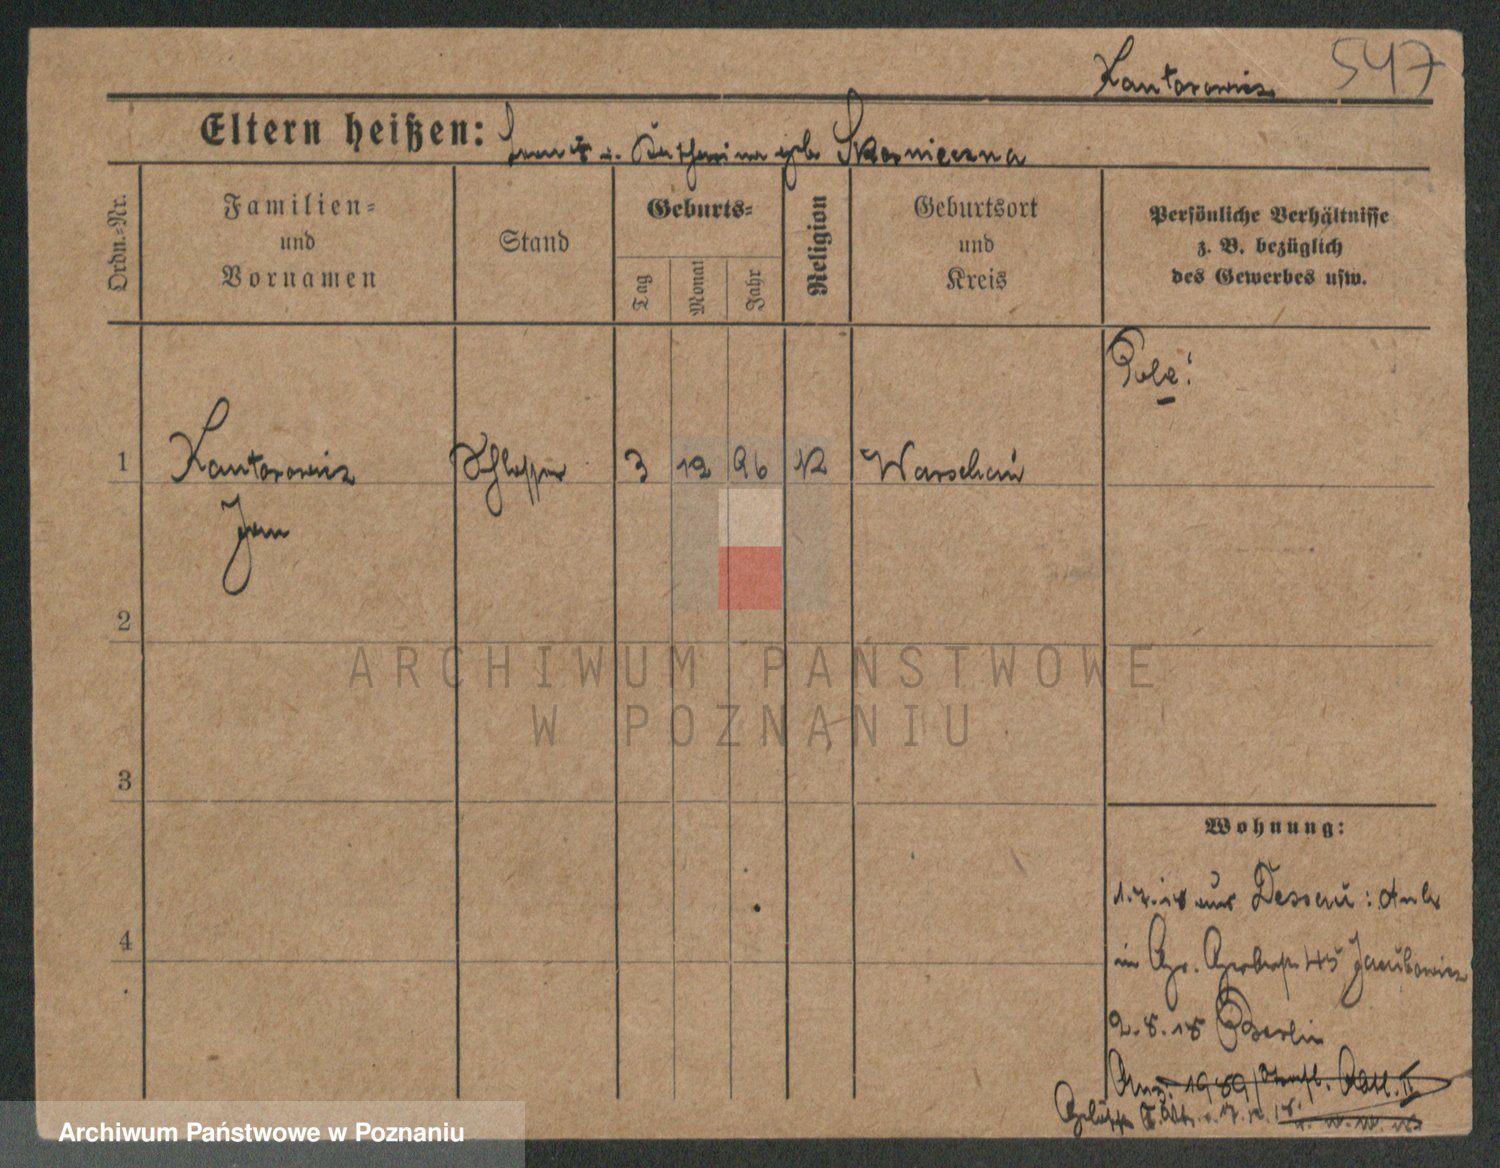 Kantorowicz 547
Eltern heißen: u. Katharina geb. Skornieczna
Ordn.-Nr.
Familien-
und
Vornamen
Stand
Geburts-
Tag
Monat
Jahr
Religion
Geburtsort
und
Kreis
Persönliche Verhältnisse
z. B. bezüglich
des Gewerbes usw.
Pole!
1 Kantorowicz Schlosser 3 12 96 Warschau
Jan
2
3
4
Wohnung:
aus Dessau: Anh
in Gr. Gerberstr 45 Jakubowicz
2.8.18 Berlin
ARCHIWUM PAŃSTWOWE
W POZNANIU
Archiwum Państwowe w Poznaniu